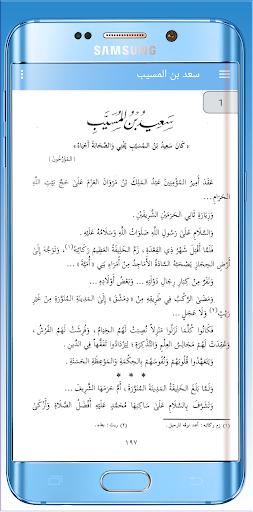 SAMSUNG
سعد بن المسيب
1
سَعِيدُ بْنُ المُسَيَّبِ
« كَانَ سَعِيدُ بْنُ المُسَيَّبِ يُفْتِي وَالصَّحَابَةُ أَحْيَاءٌ »
[المؤرِّخون]
عَقَدَ أَمِيرُ المُؤْمِنِينَ عَبْدُ المَلِكِ بْنُ مَرْوَانَ العَزْمَ عَلَىٰ حَجِّ بَيْتِ اللَّهِ
الحَرَامِ ...
وَزِيَارَةِ ثَانِي الحَرَمَيْنِ الشَّرِيفَيْنِ.
وَالسَّلَامِ عَلَىٰ رَسُولِ اللَّهِ صَلَوَاتُ اللَّهِ وَسَلَامُهُ عَلَيْهِ.
فَلَمَّا أَقْبَلَ شَهْرُ ذِي القِعْدَةِ ، زَمَّ الخَلِيفَةُ العَظِيمُ رَكَائِبَهُ(١)، وَتَوَجَّهَ إِلَىٰ
أَرْضِ الحِجَازِ يَصْحَبُهُ السَّادَةُ الأَمَاجِدُ مِنْ أُمَرَاءِ بَنِي « أُمَيَّةَ » ...
وَنَفَرٌ مِنْ كِبَارِ رِجَالِ دَوْلَتِهِ ... وَبَعْضُ أَوْلَادِهِ ...
وَمَضَىٰ الرَّكْبُ فِي طَرِيقِهِ مِنْ « دِمَشْقَ » إِلَىٰ المَدِينَةِ المُنَوَّرَةِ مِنْ غَيْرِ
رَيْثٍ(٢) وَلَا عَجَلٍ ...
فَكَانُوا كُلَّمَا نَزَلُوا مَنْزِلاً نُصِبَتْ لَهُمُ الخِيَامُ ، وَفُرِشَتْ لَهُمُ الفُرُشُ ،
وَعُقِدَتْ لَهُمْ مَجَالِسُ العِلْمِ وَالتَّذْكِرَةِ ؛ لِيَزْدَادُوا تَفَقُّهاً فِي الدِّينِ.
وَلِيَتَعَهَّدُوا قُلُوبَهُمْ وَنُفُوسَهُمْ بِالحِكْمَةِ وَالمَوْعِظَةِ الحَسَنَةِ .
* * *
وَلَمَّا بَلَغَ الخَلِيفَةُ المَدِينَةَ المُنَوَّرَةَ ، أَمَّ حَرَمَهَا الشَّرِيفَ ...
وَتَشَرَّفَ بِالسَّلَامِ عَلَىٰ سَاكِنِهَا مُحَمَّدٍ عَلَيْهِ أَفْضَلُ الصَّلَاةِ وَأَزْكَىٰ
(١) زم ركائبه : أعد نوقه للرحيل. (٢) ريث : بطء .
١٩٧